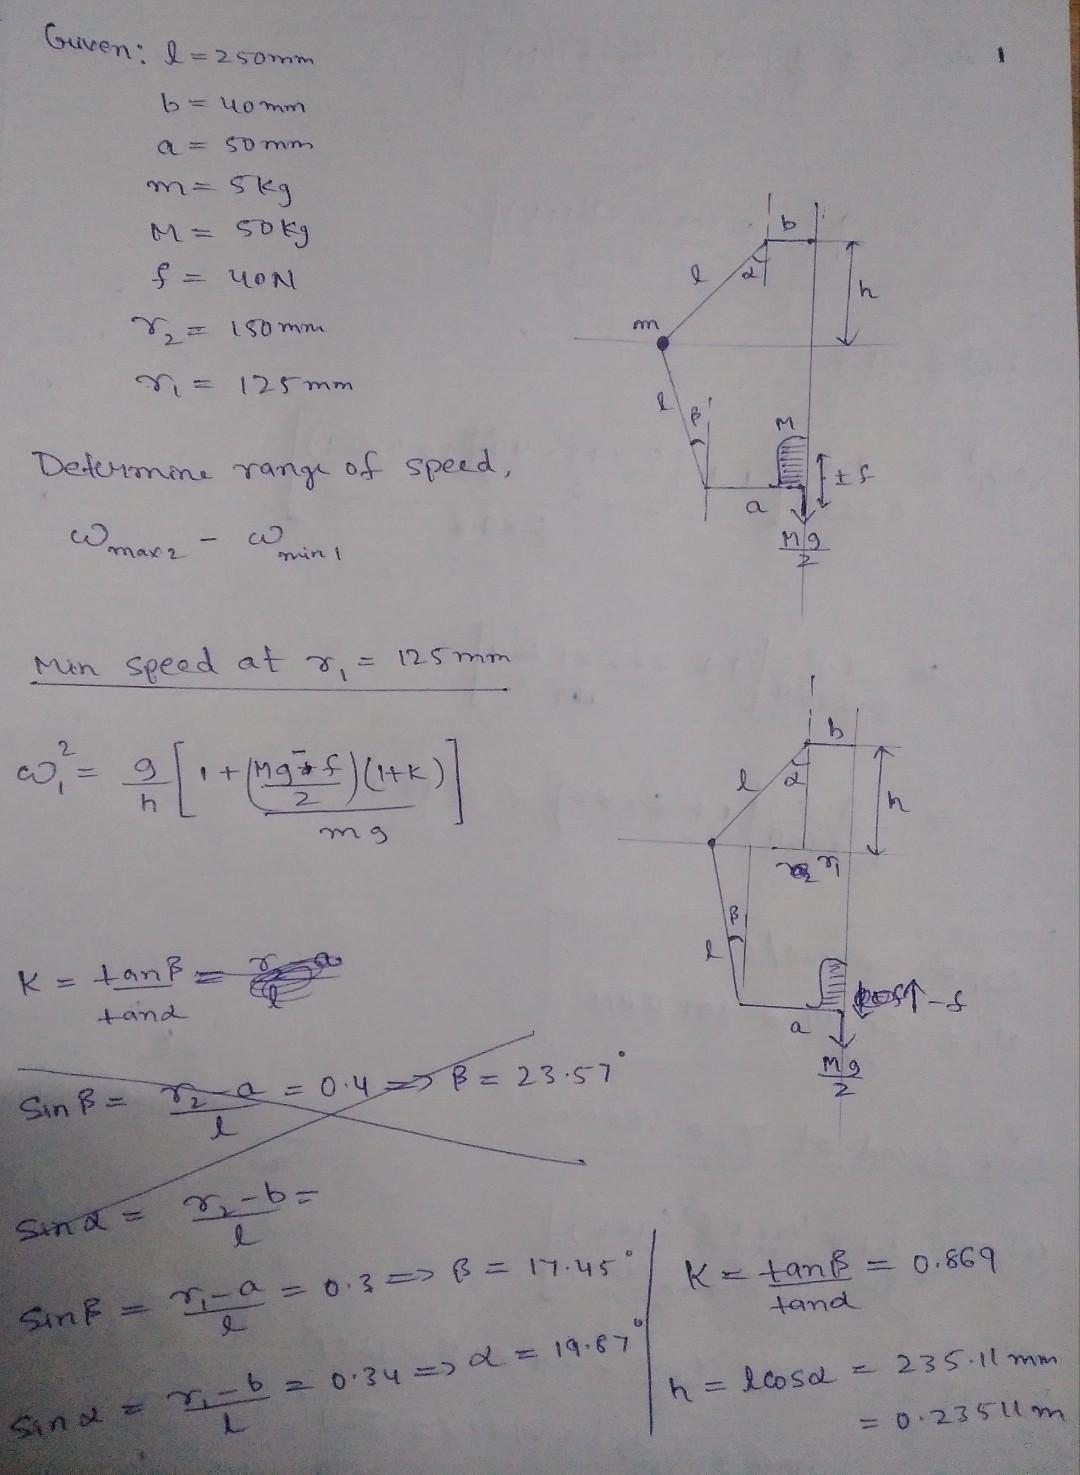 Given: l = 250mm
b = 40mm
a = 50mm
m = 5kg
M = 50kg
f = 40N
r₂ = 150mm
r₁ = 125mm
b
l
α
h
m
l
β
M
± f
a
Mg/2
Determine range of speed,
ω max 2 - ω min 1
Min speed at r₁ = 125mm
ω₁² = g/h [1 + ((Mg - f)/2)(1+K)/mg]
b
l
α
h
r₁
β
l
- f
a
Mg/2
K = tanβ/tanα =
Sinβ = (r₂-a)/l = 0.4 => β = 23.57°
Sinα = (r₂-b)/l =
Sinβ = (r₁-a)/l = 0.3 => β = 17.45°
Sinα = (r₁-b)/l = 0.34 => α = 19.87°
K = tanβ/tanα = 0.869
h = lcosα = 235.11mm
= 0.23511m